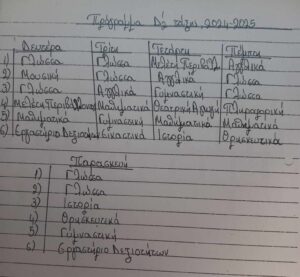 Πρόγραμμα Δ΄ τάξης 2024-2025
Δευτέρα Τρίτη Τετάρτη Πέμπτη
1) Γλώσσα Γλώσσα Μελέτη Περιβάλλ Αγγλικά
2) Μουσική Γλώσσα Αγγλικά Γλώσσα
3) Γλώσσα Αγγλικά Γυμναστική Γλώσσα
4) Μελέτη Περιβάλλοντος Μαθηματικά Θεατρική Αγωγή Πληροφορική
5) Μαθηματικά Γυμναστική Μαθηματικά Μαθηματικά
6) Εργαστήριο Δεξιοτήτων Εικαστικά Ιστορία Θρησκευτικά
Παρασκευή
1) Γλώσσα
2) Γλώσσα
3) Ιστορία
4) Θρησκευτικά
5) Γυμναστική
6) Εργαστήριο Δεξιοτήτων